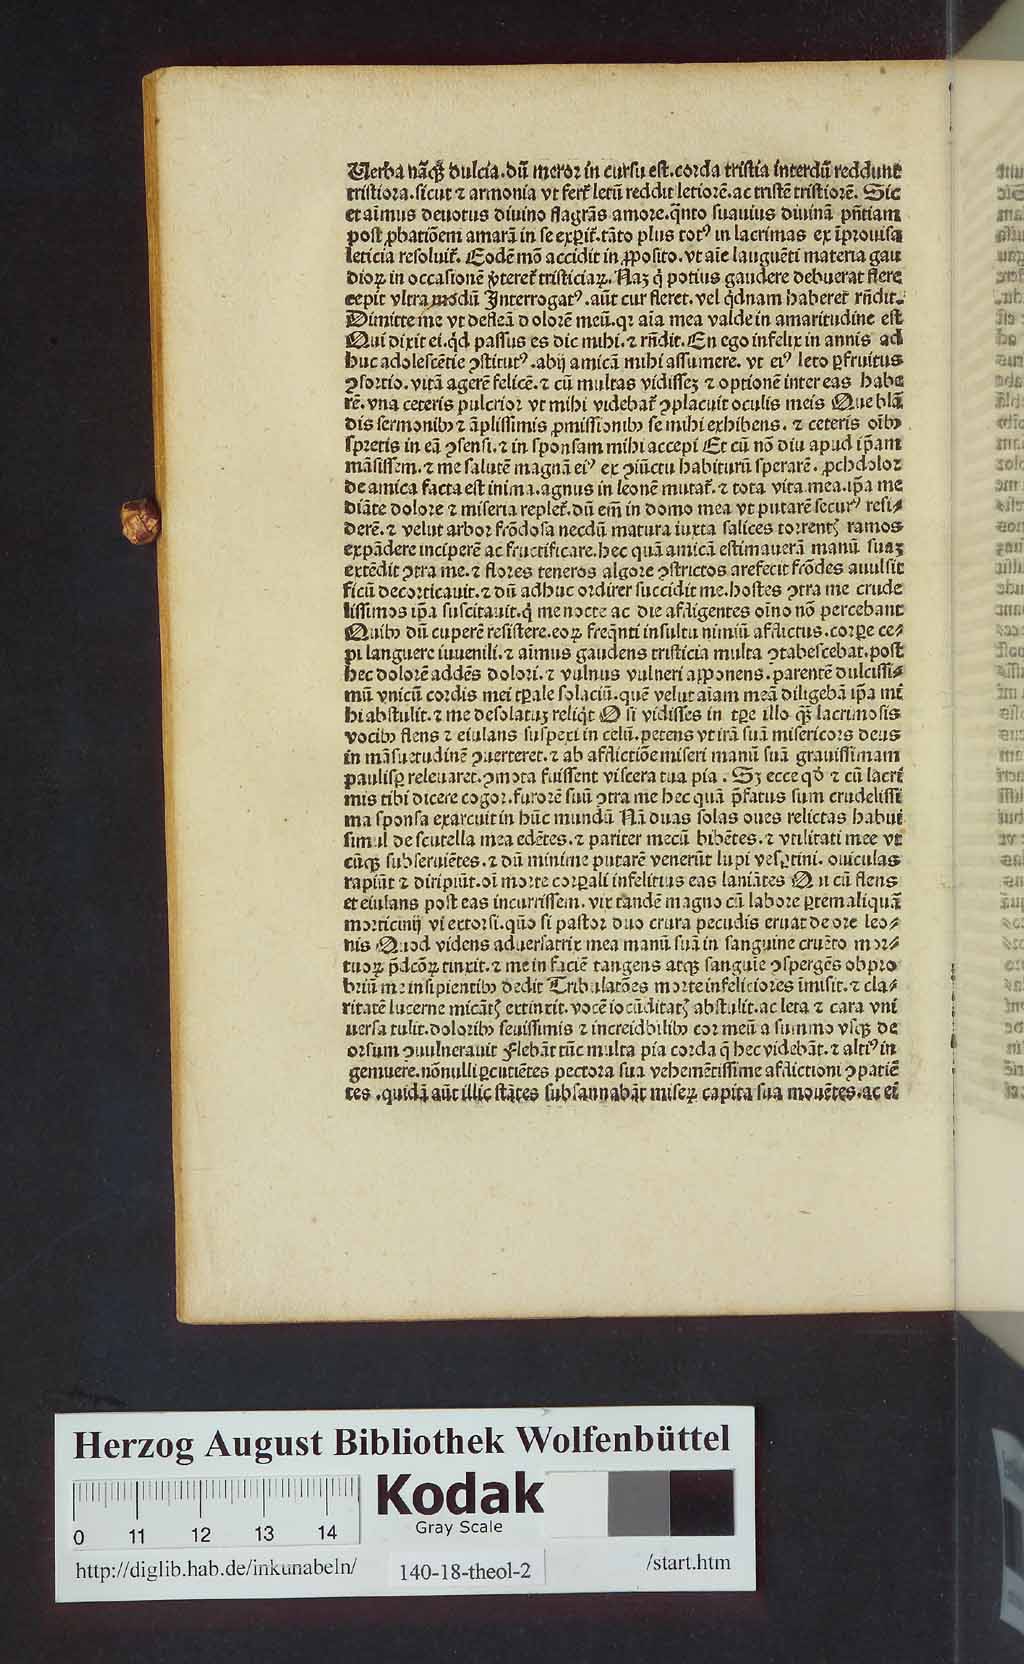 Uerba nāqꝫ dulcia. dū meror in cursu est. corda tristia interdū reddunt
tristiora. sicut ⁊ armonia vt fert̄ letū reddit letiorē. ac tristē tristiorē. Sic
et aīmus deuotus diuino flagrās amore. q̄nto suauius diuinā pn̄tiam
post ꝓbatiōem amarā in se exꝑit̄. tāto plus totꝰ in lacrimas ex īprouisa
leticia resoluit̄. Eodē mō accidit in ꝓposito. vt aīe languēti materia gau
dioꝝ in occasionē ꝟteret̄ tristiciaꝝ. Naꝫ q̇ potius gaudere debuerat flere
cepit vltra modū Interrogatꝰ. aūt cur fleret. vel q̇dnam haberet rn̄dit.
Dimitte me vt defleā dolorē meū. qꝛ aīa mea valde in amaritudine est
Qui dixit ei. q̇d passus es dic mihi. ⁊ rn̄dit. En ego infelix in annis ad
huc adolescētie ꝯstitutꝰ. abij amicā mihi assumere. vt eiꝰ leto ꝑfruitus
ꝯsortio. vitā agerē felicē. ⁊ cū multas vidisseꝫ ⁊ optionē inter eas habe
rē. vna ceteris pulcrior vt mihi videbat̄ ꝯplacuit oculis meis Que blā
dis sermonibꝫ ⁊ āplissimis ꝓmissionibꝫ se mihi exhibens. ⁊ ceteris oībꝫ
spretis in eā ꝯsensi. ⁊ in sponsam mihi accepi Et cū nō diu apud ip̄am
māsissem. ⁊ me salutē magnā eiꝰ ex ꝯiūctu habiturū sperarē. ꝓchdolor
de amica facta est inima. agnus in leonē mutat̄. ⁊ tota vita mea. ip̄a me
diāte dolore ⁊ miseria replet̄. dū em̄ in domo mea vt putarē securꝰ resi⸗
derē. ⁊ velut arbor frōdosa necdū matura iuxta salices torrentꝭ ramos
expādere inciperē ac fructificare. hec quā amicā estimauerā manū suaꝫ
extēdit ꝯtra me. ⁊ flores teneros algore ꝯstrictos arefecit frōdes auulsit
ficū decorticauit. ⁊ dū adhuc ordirer succidit me. hostes ꝯtra me crude
lissimos ip̄a suscitauit. q̇ me nocte ac die affligentes oīno nō percebant
Quibꝫ dū cuperē resistere. eoꝝ freq̄nti insultu nimiū afflictus. corꝑe ce⸗
pi languere iuuenili. ⁊ aīmus gaudens tristicia multa ꝯtabescebat. post
hec dolorē addēs dolori. ⁊ vulnus vulneri apponens. parentē dulcissi⸗
mū vnicū cordis mei tꝑale solaciū. quē velut aīam meā diligebā ip̄a mi
hi abstulit. ⁊ me desolatuꝫ reliq̇t O si vidisses in tꝑe illo qꝫ lacrimosis
vocibꝫ flens ⁊ eiulans suspexi in celū. petens vt irā suā misericors deus
in māsuetudinē ꝯuerteret. ⁊ ab afflictiōe miseri manū suā grauissimam
paulisꝑ releuaret. ꝯmota fuissent viscera tua pia. Sꝫ ecce qd̄ ⁊ cū lacri
mis tibi dicere cogor. furorē suū ꝯtra me hec quā p̄fatus sum crudelissi
ma sponsa exarcuit in hūc mundū Nā duas solas oues relictas habui
simul de scutella mea edētes. ⁊ pariter mecū bibētes. ⁊ vtilitati mee vt
cūqꝫ subseruiētes. ⁊ dū minime putarē venerūt lupi vesꝑtini. ouiculas
rapiūt ⁊ diripiūt. oī morte corꝑali infelitius eas laniātes Qui cū flens
et eiulans post eas incurrissem. vix tandē magno cū labore ꝑtem aliquā
morticinij vi extorsi. quō si pastor duo crura pecudis eruat de ore leo⸗
nis Quod videns aduersatrix mea manū suā in sanguine cruēto mor⸗
tuoꝝ p̄dcōꝝ tinxit. ⁊ me in faciē tangens atqꝫ sanguīe ꝯspergēs obpro
briū me insipientibꝫ dedit Tribulatōes morte infeliciores īmisit. ⁊ cla⸗
ritatē lucerne micātꝭ extinxit. vocē iocūditatꝭ abstulit. ac leta ⁊ cara vni
uersa tulit. doloribꝫ seuissimis ⁊ increidbilibꝫ cor meū a summo vsqꝫ de
orsum ꝯuulnerauit Flebāt tūc multa pia corda q̄ hec videbāt. ⁊ altiꝰ in
gemuere. nōnulli ꝑcutiētes pectora sua vehemētissime afflictioni ꝯpatiē
tes. quidā aūt illic stātes subsannabāt miseꝝ capita sua mouētes. ac ei
Herzog August Bibliothek Wolfenbüttel
Kodak
Gray Scale
0 11 12 13 14
http://diglib.hab.de/inkunabeln/ 140-18-theol-2 /start.htm